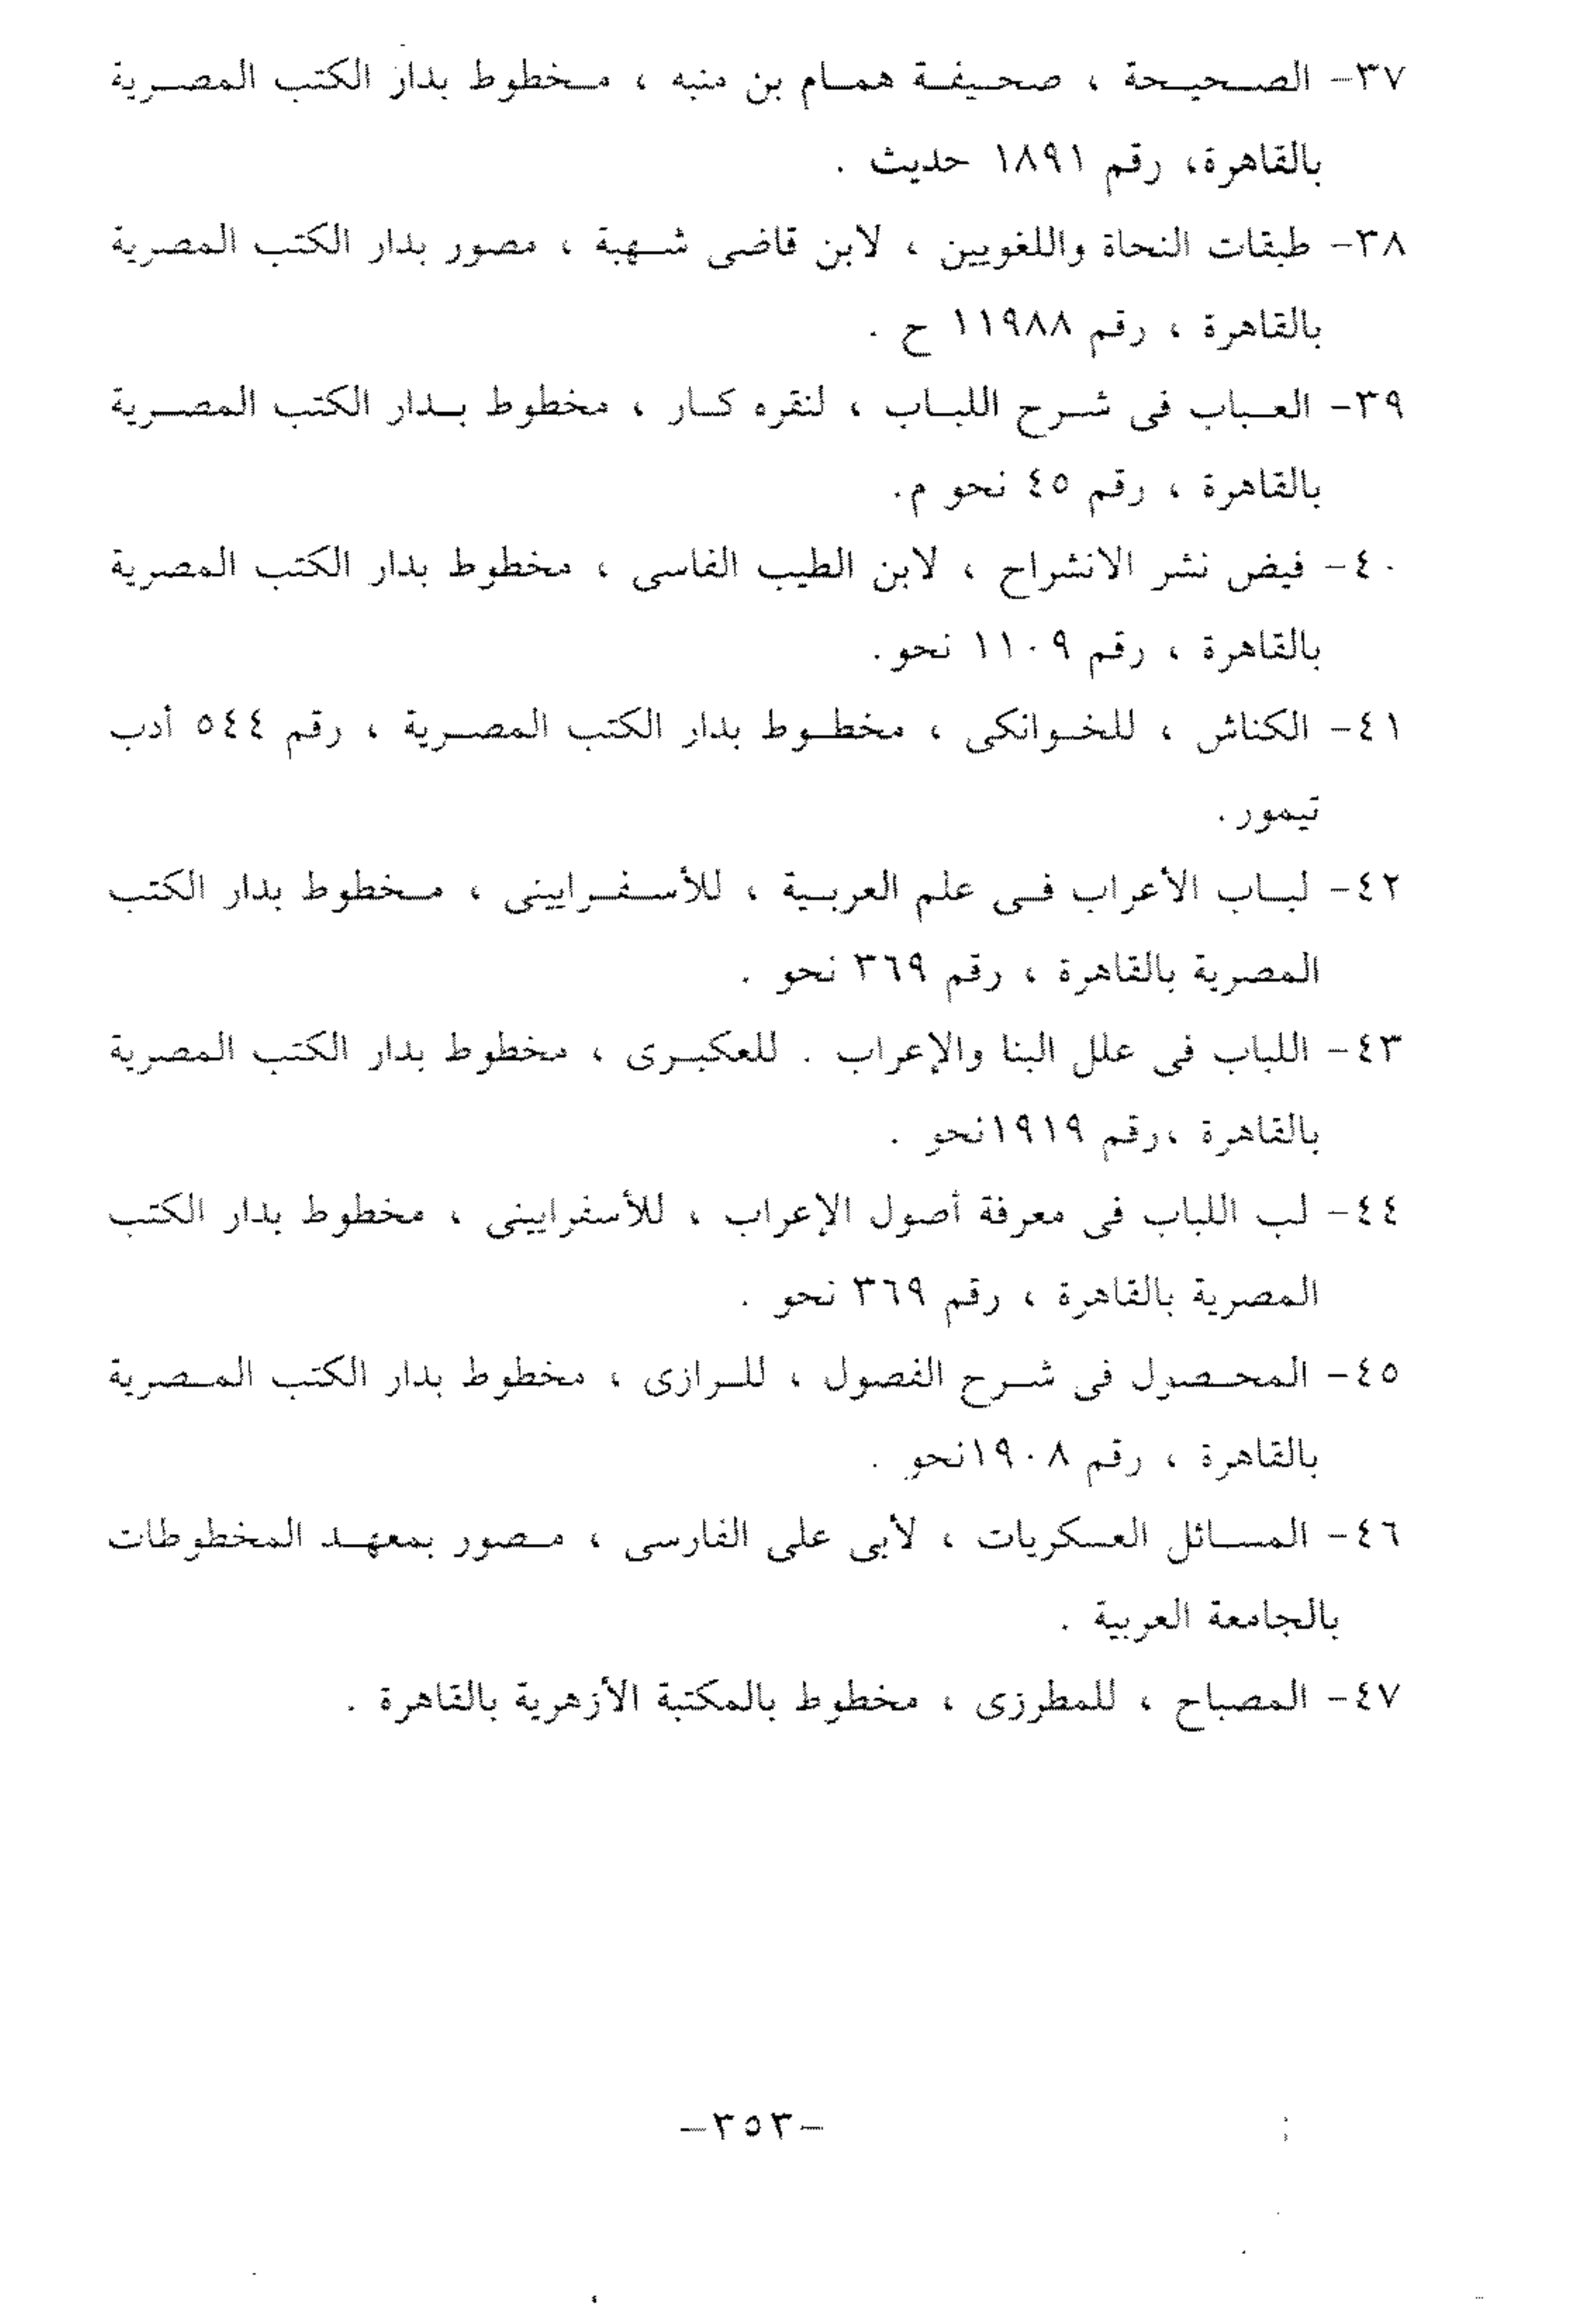 ٣٧- الصحيحة ، صحيفة همام بن منبه ، مخطوط بدار الكتب المصرية
بالقاهرة، رقم ١٨٩١ حديث .
٣٨- طبقات النحاة واللغويين ، لابن قاضى شهبة ، مصور بدار الكتب المصرية
بالقاهرة ، رقم ١١٩٨٨ ح .
٣٩- العباب فى شرح اللباب ، لنقره كار ، مخطوط بدار الكتب المصرية
بالقاهرة ، رقم ٤٥ نحو م.
٤٠- فيض نشر الانشراح ، لابن الطيب الفاسى ، مخطوط بدار الكتب المصرية
بالقاهرة ، رقم ١١٠٩ نحو.
٤١- الكناش ، للخوانكى ، مخطوط بدار الكتب المصرية ، رقم ٥٤٤ أدب
تيمور.
٤٢- لباب الأعراب فى علم العربية ، للأسفرايينى ، مخطوط بدار الكتب
المصرية بالقاهرة ، رقم ٣٦٩ نحو .
٤٣- اللباب فى علل البنا والإعراب . للعكبرى ، مخطوط بدار الكتب المصرية
بالقاهرة ،رقم ١٩١٩نحو .
٤٤- لب اللباب فى معرفة أصول الإعراب ، للأسفرايينى ، مخطوط بدار الكتب
المصرية بالقاهرة ، رقم ٣٦٩ نحو .
٤٥- المحصول فى شرح الفصول ، للرازى ، مخطوط بدار الكتب المصرية
بالقاهرة ، رقم ١٩٠٨نحو .
٤٦- المسائل العسكريات ، لأبى على الفارسى ، مصور بمعهد المخطوطات
بالجامعة العربية .
٤٧- المصباح ، للمطرزى ، مخطوط بالمكتبة الأزهرية بالقاهرة .
-٣٥٣-